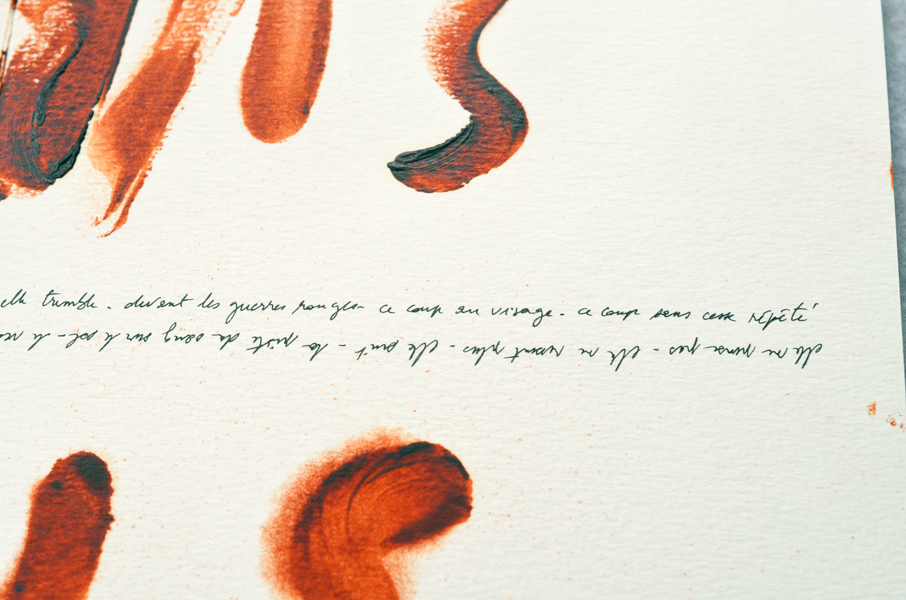 elle tremble - devant les guerres rouges - ce coup au visage - ce coup sans cesse répété
elle ne pense pas - elle ne ressent plus - elle suit - la piste de sang sur le sol - le